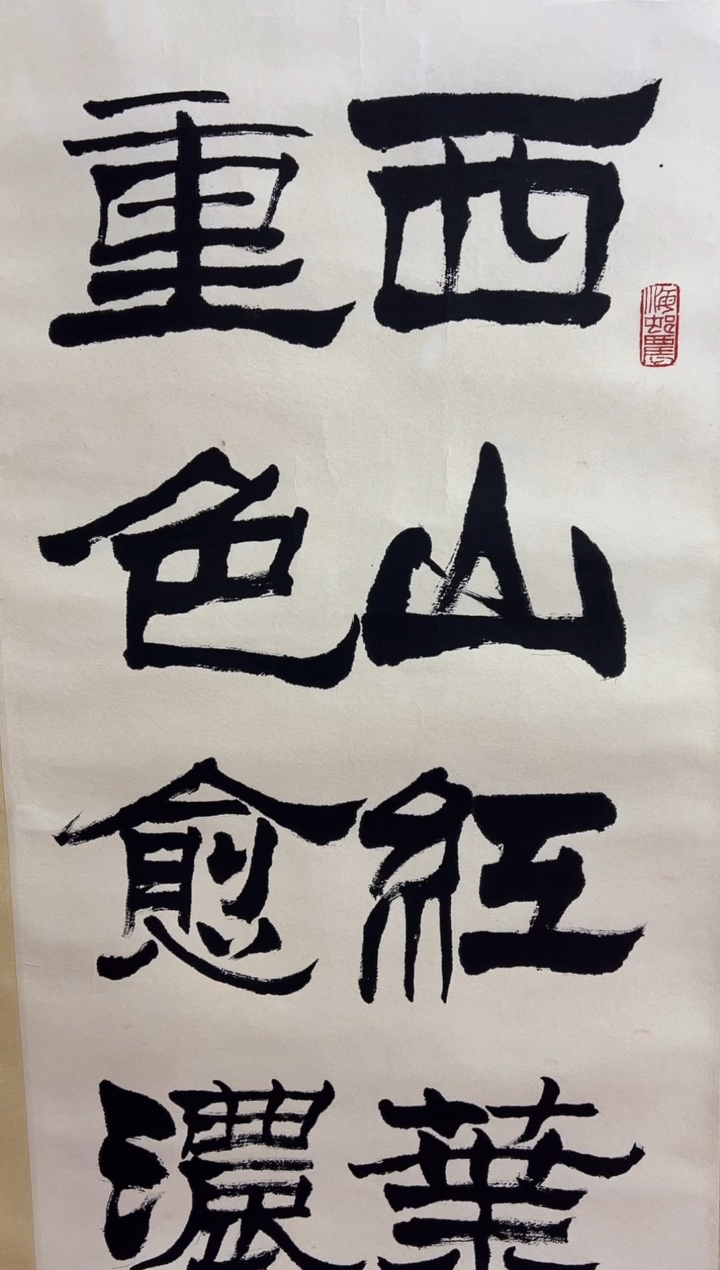 西山紅葉
重色愈濃